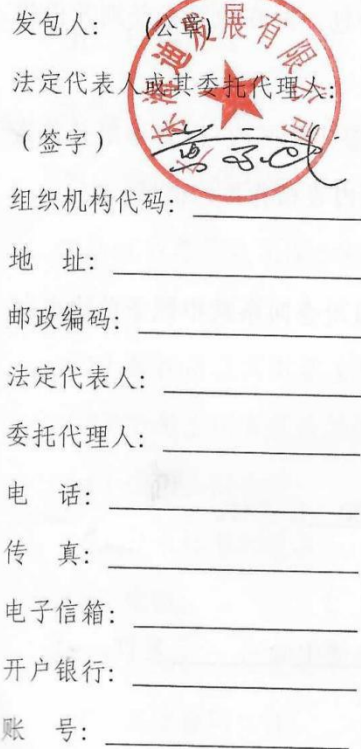 发包人： (公章)
法定代表人或其委托代理人:
（签字）
组织机构代码:
地 址:
邮政编码:
法定代表人:
委托代理人:
电 话:
传 真:
电子信箱:
开户银行:
账 号:
发展有限公司